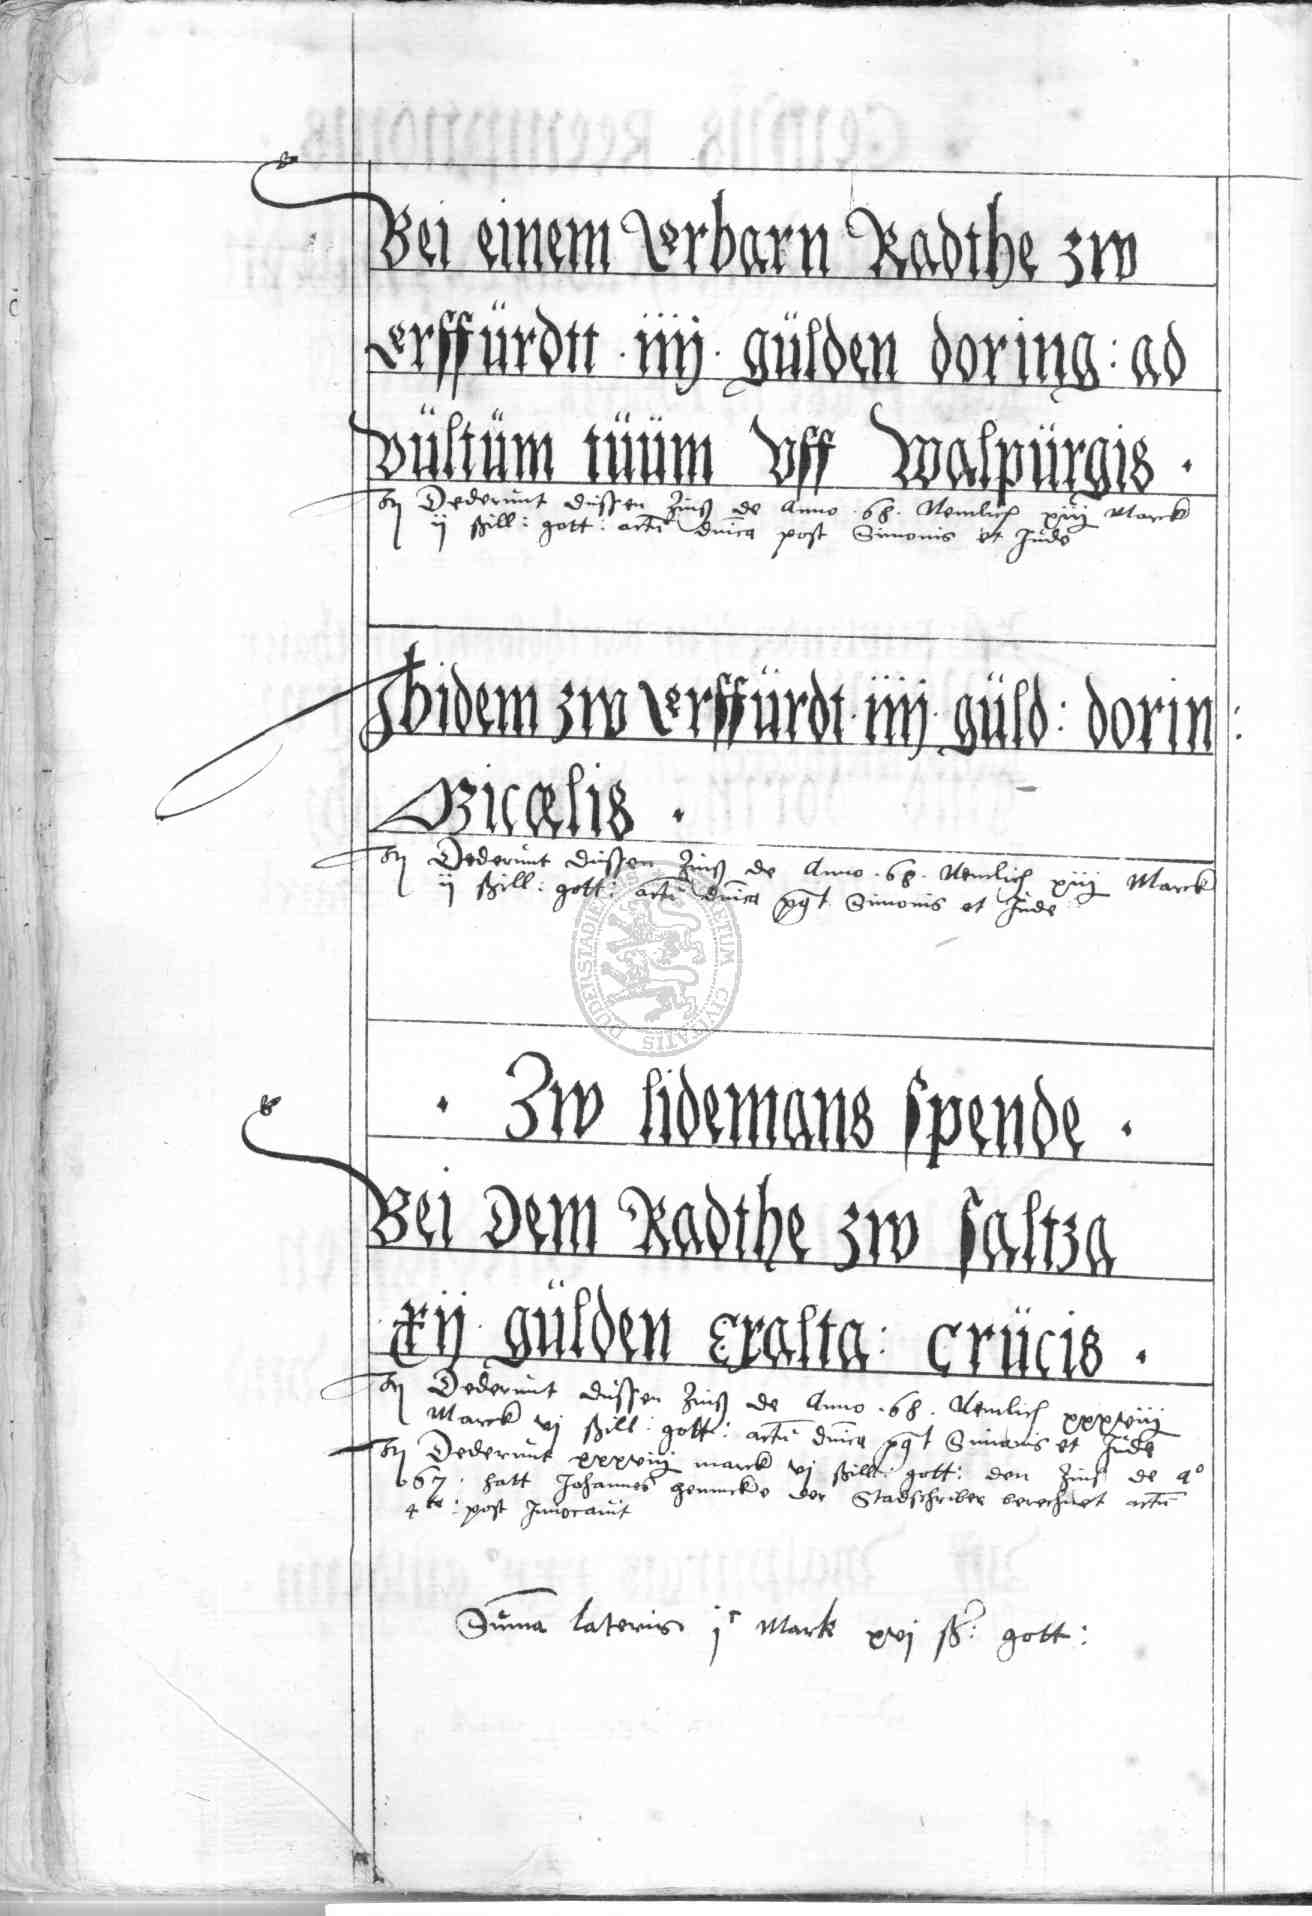 Bei einem Erbarn Radthe zw
Erffürdtt · iiij · gülden doring : ad
vültüm tüüm vff Walpürgis ·
Dederunt dussen Zinß de Anno · 68 · Nemlich xiiij Marck
ij ßill : gott : actũ dnĩca post Simonis et Jude
Ibidem zw Erffürdt · iiij · güld : dorin :
Micælis ·
Dederunt dussen Zinß de Anno · 68 · Nemlich xiiij Marck
ij ßill : gott : actũ dnĩca post Simonis et Jude
· Zw lidemans spende ·
Bei Dem Radthe zw saltza
xij · gülden Exalta : crücis ·
Dederunt dussen Zinß de Anno · 68 · Nemlich xxxviiij
Marck vj ßill : gott : actũ dnĩca post Simonis et Jude
Dederunt xxxviiij marck vj ßill : gott : den Zinß de aº
67 · hatt Johannes der Stadschriber berechnet actũ
4ta : post Inuocauit
Suma lateris Mark xvj ß : gott :
DUDERSTADIENSIS CIVITATIS